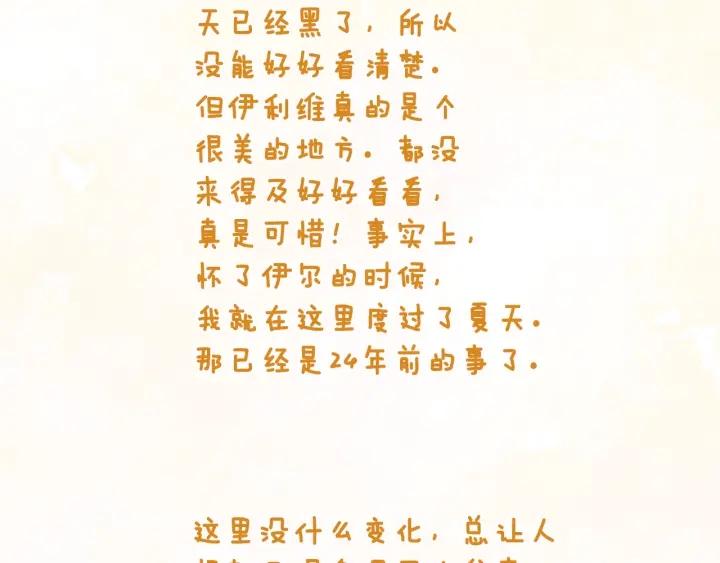 天已经黑了，所以
没能好好看清楚。
但伊利维真的是个
很美的地方。都没
来得及好好看看，
真是可惜！事实上，
怀了伊尔的时候，
我就在这里度过了夏天。
那已经是24年前的事了。
这里没什么变化，总让人